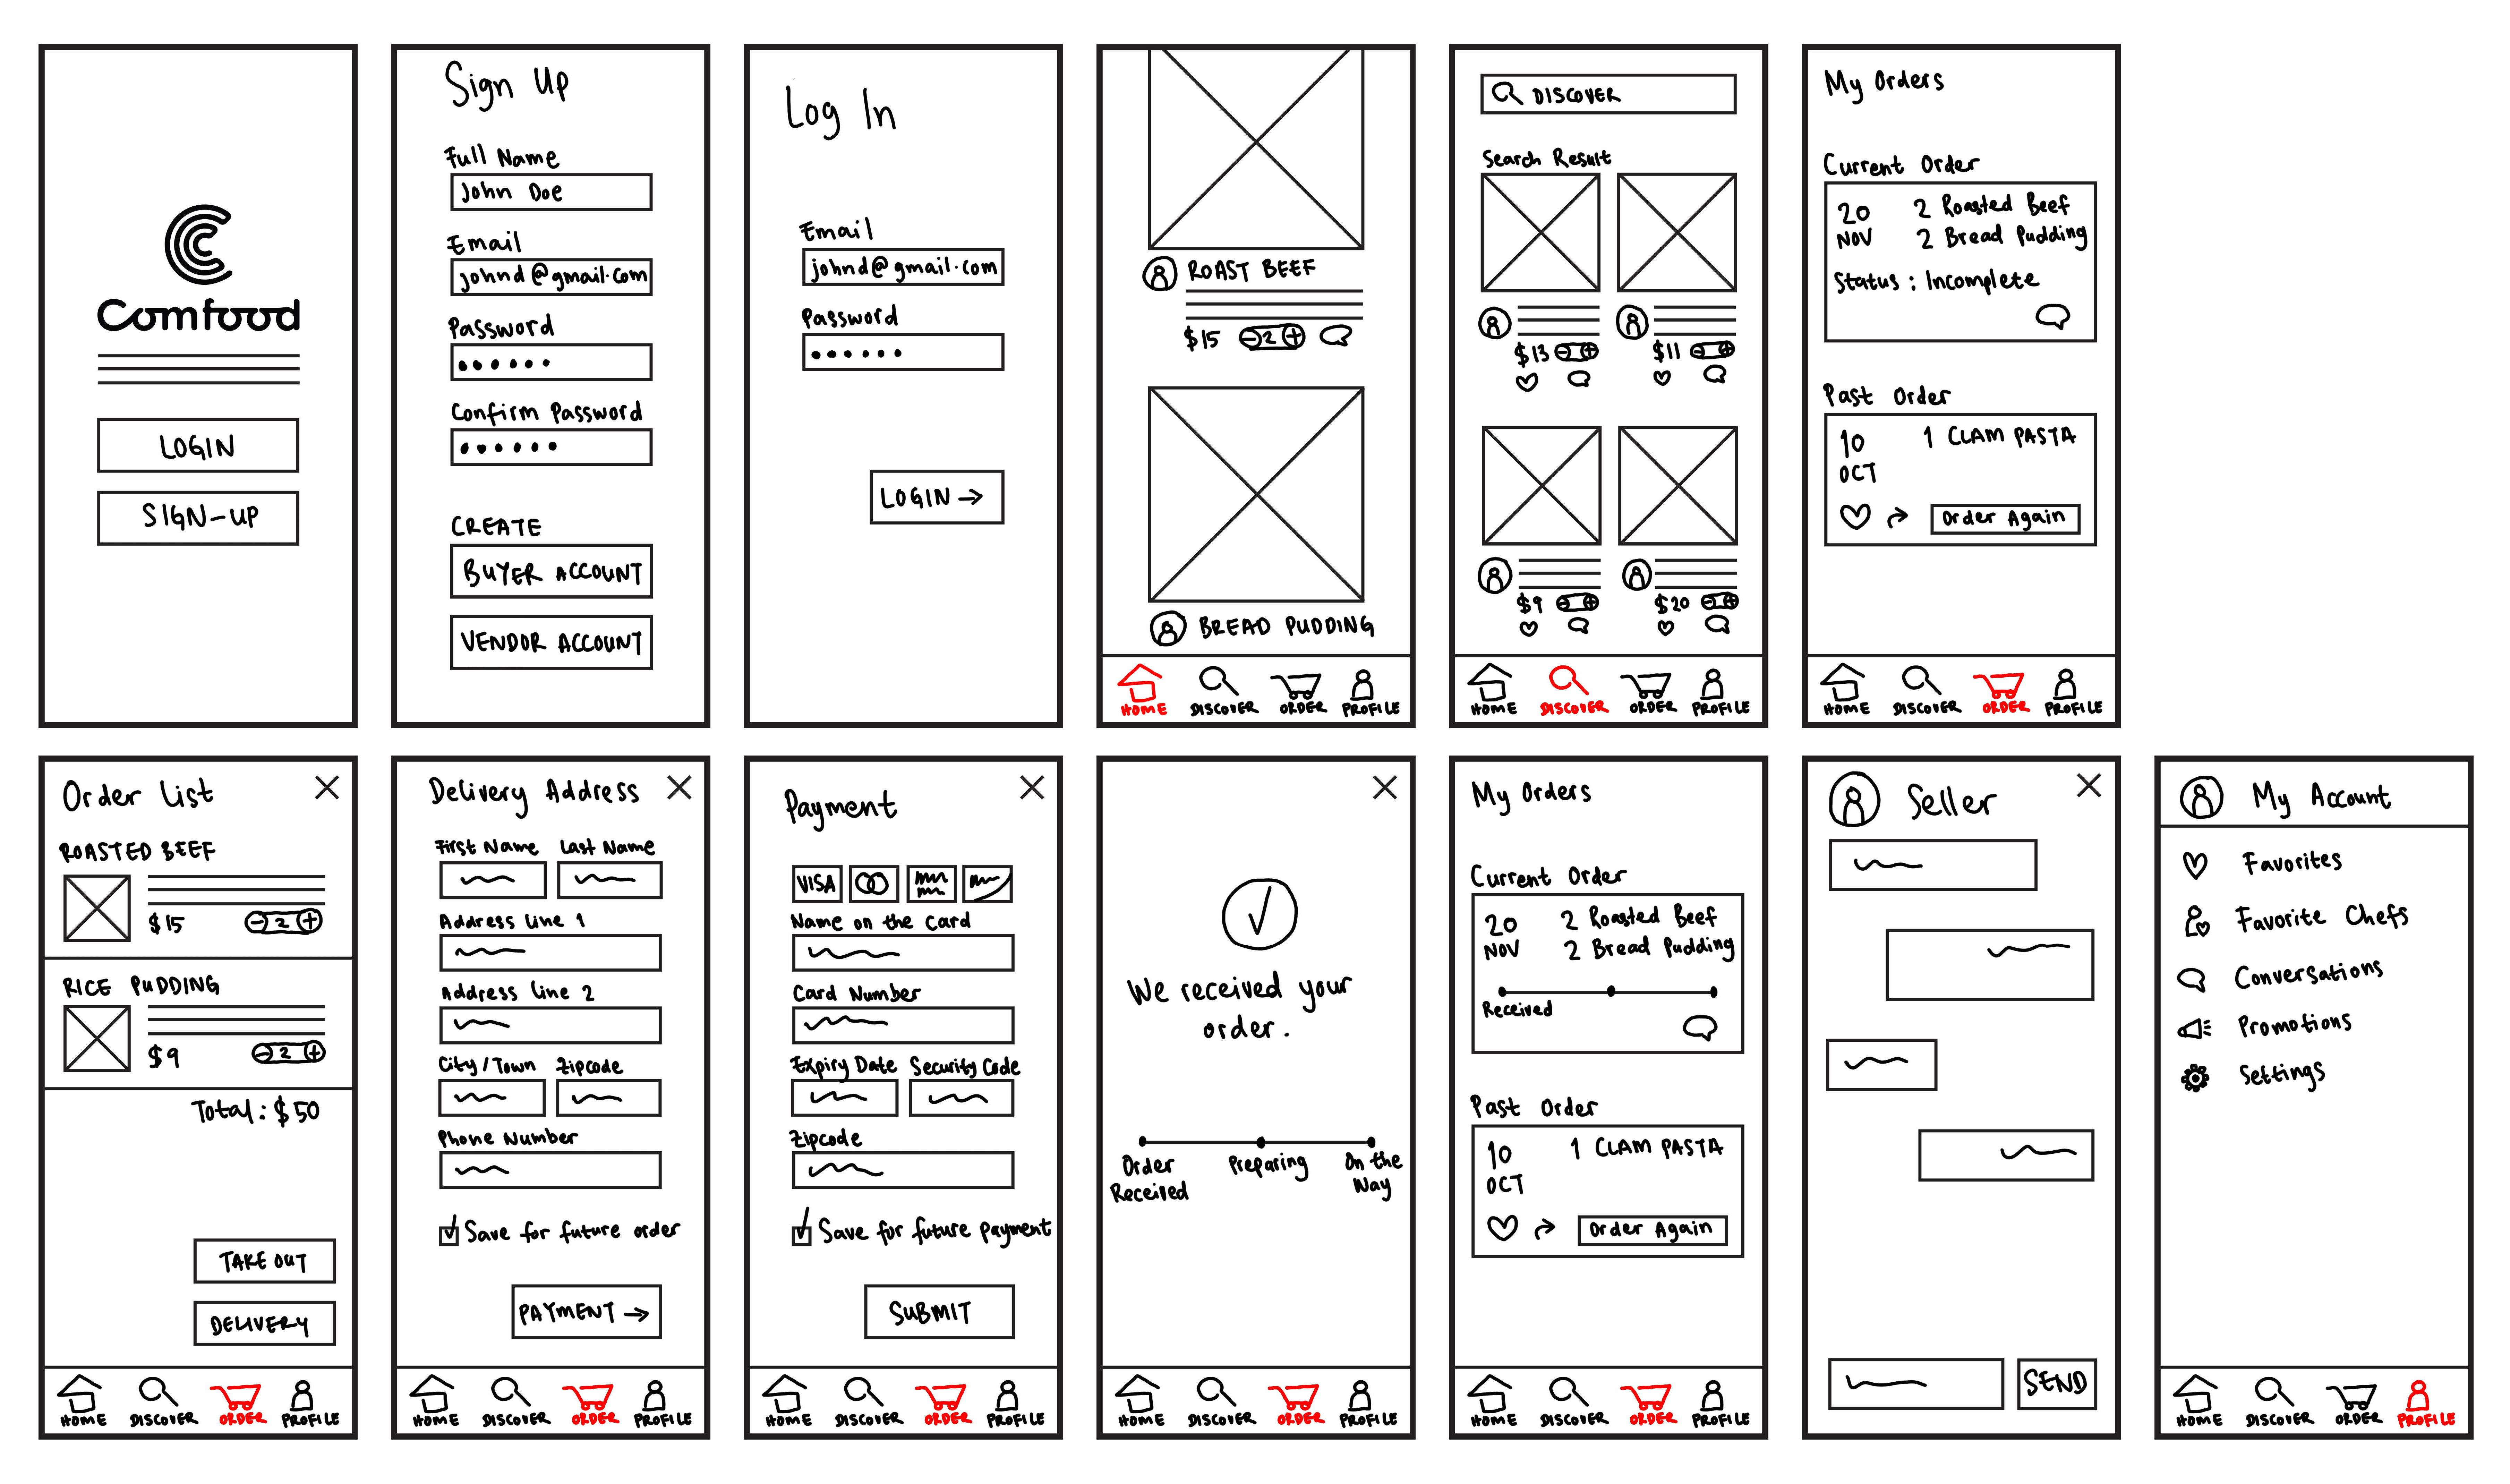 Comfood
LOGIN
SIGN-UP
Sign Up
Full Name
John Doe
Email
johnd@gmail.com
Password
Confirm Password
CREATE
BUYER ACCOUNT
VENDOR ACCOUNT
Log In
Email
johnd@gmail.com
Password
LOGIN →
ROAST BEEF
$15 - 2 +
BREAD PUDDING
HOME DISCOVER ORDER PROFILE
DISCOVER
Search Result
$13 - +
$11 - +
$9 - +
$20 - +
HOME DISCOVER ORDER PROFILE
My Orders
Current Order
20 2 Roasted Beef
NOV 2 Bread Pudding
Status : Incomplete
Past Order
10 1 CLAM PASTA
OCT
Order Again
HOME DISCOVER ORDER PROFILE
Order List
ROASTED BEEF
$15 - 2 +
RICE PUDDING
$9 - 2 +
Total: $50
TAKE OUT
DELIVERY
HOME DISCOVER ORDER PROFILE
Delivery Address
First Name Last Name
Address line 1
Address line 2
City/Town Zipcode
Phone Number
Save for future order
PAYMENT →
HOME DISCOVER ORDER PROFILE
Payment
VISA
Name on the Card
Card Number
Expiry Date Security Code
Zipcode
Save for future payment
SUBMIT
HOME DISCOVER ORDER PROFILE
We received your
order.
Order Preparing On the
Received Way
HOME DISCOVER ORDER PROFILE
My Orders
Current Order
20 2 Roasted Beef
NOV 2 Bread Pudding
Received
Past Order
10 1 CLAM PASTA
OCT
Order Again
HOME DISCOVER ORDER PROFILE
Seller
SEND
My Account
Favorites
Favorite Chefs
Conversations
Promotions
Settings
HOME DISCOVER ORDER PROFILE